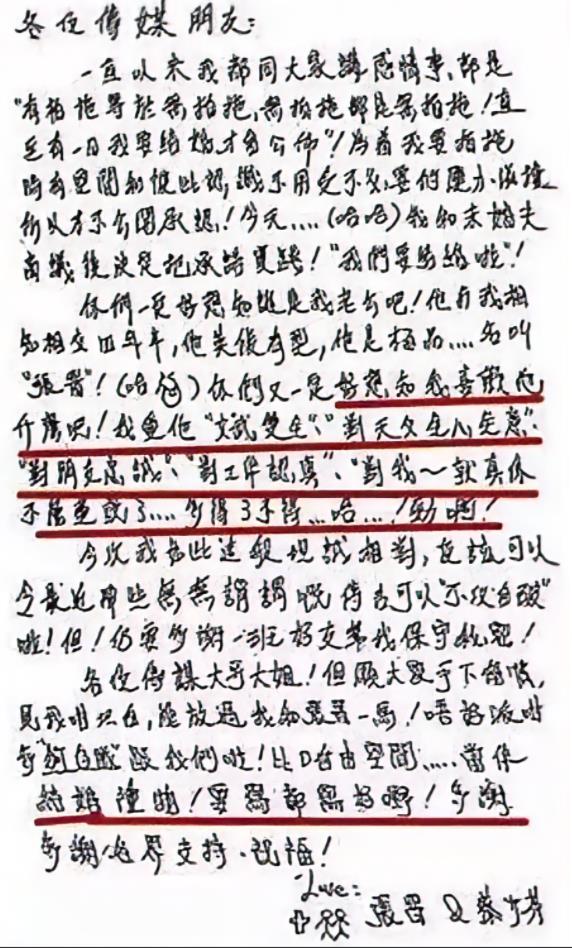 各位傳媒朋友：
一直以來我都同大家講感情事，都是
"有拍拖等於無拍拖，無拍拖都是無拍拖！直
至有一日我要結婚才會公佈"！為着我要拍拖
時有空間和彼此認識不用受不必要的壓力
所以才不公開承認！今天....（哈哈）我和未婚夫
商議後決定把承諾實踐！"我們要結婚啦"！
你們一定好想知誰是我老公吧！他和我相
知相交四年，他英俊有型，他是極品....名叫
"張晉"！（哈）你們又一定好想知我喜歡他
什麼呢！我愛他"文武雙全"、"對天父全心全意"、
"對朋友忠誠"、"對工作認真"、"對我～就真係
不得了....哈...！勁啊！
今次我如此這般坦誠相對，應該可以
令最近那些無無謂謂嘅傳言可以"不攻自破"
啦！但！仍要多謝一班好友幫我保守秘密！
各位傳媒大哥大姐！但願大家手下留情，
見我咁坦白，能放過我和張晉一馬！唔好派咁
多"狗仔隊"跟我們啦！比D自由空間.....當係
結婚禮物！要寫都寫好嘢！多謝
多謝各界支持、祝福！
Love:
張晉 & 蔡少芬